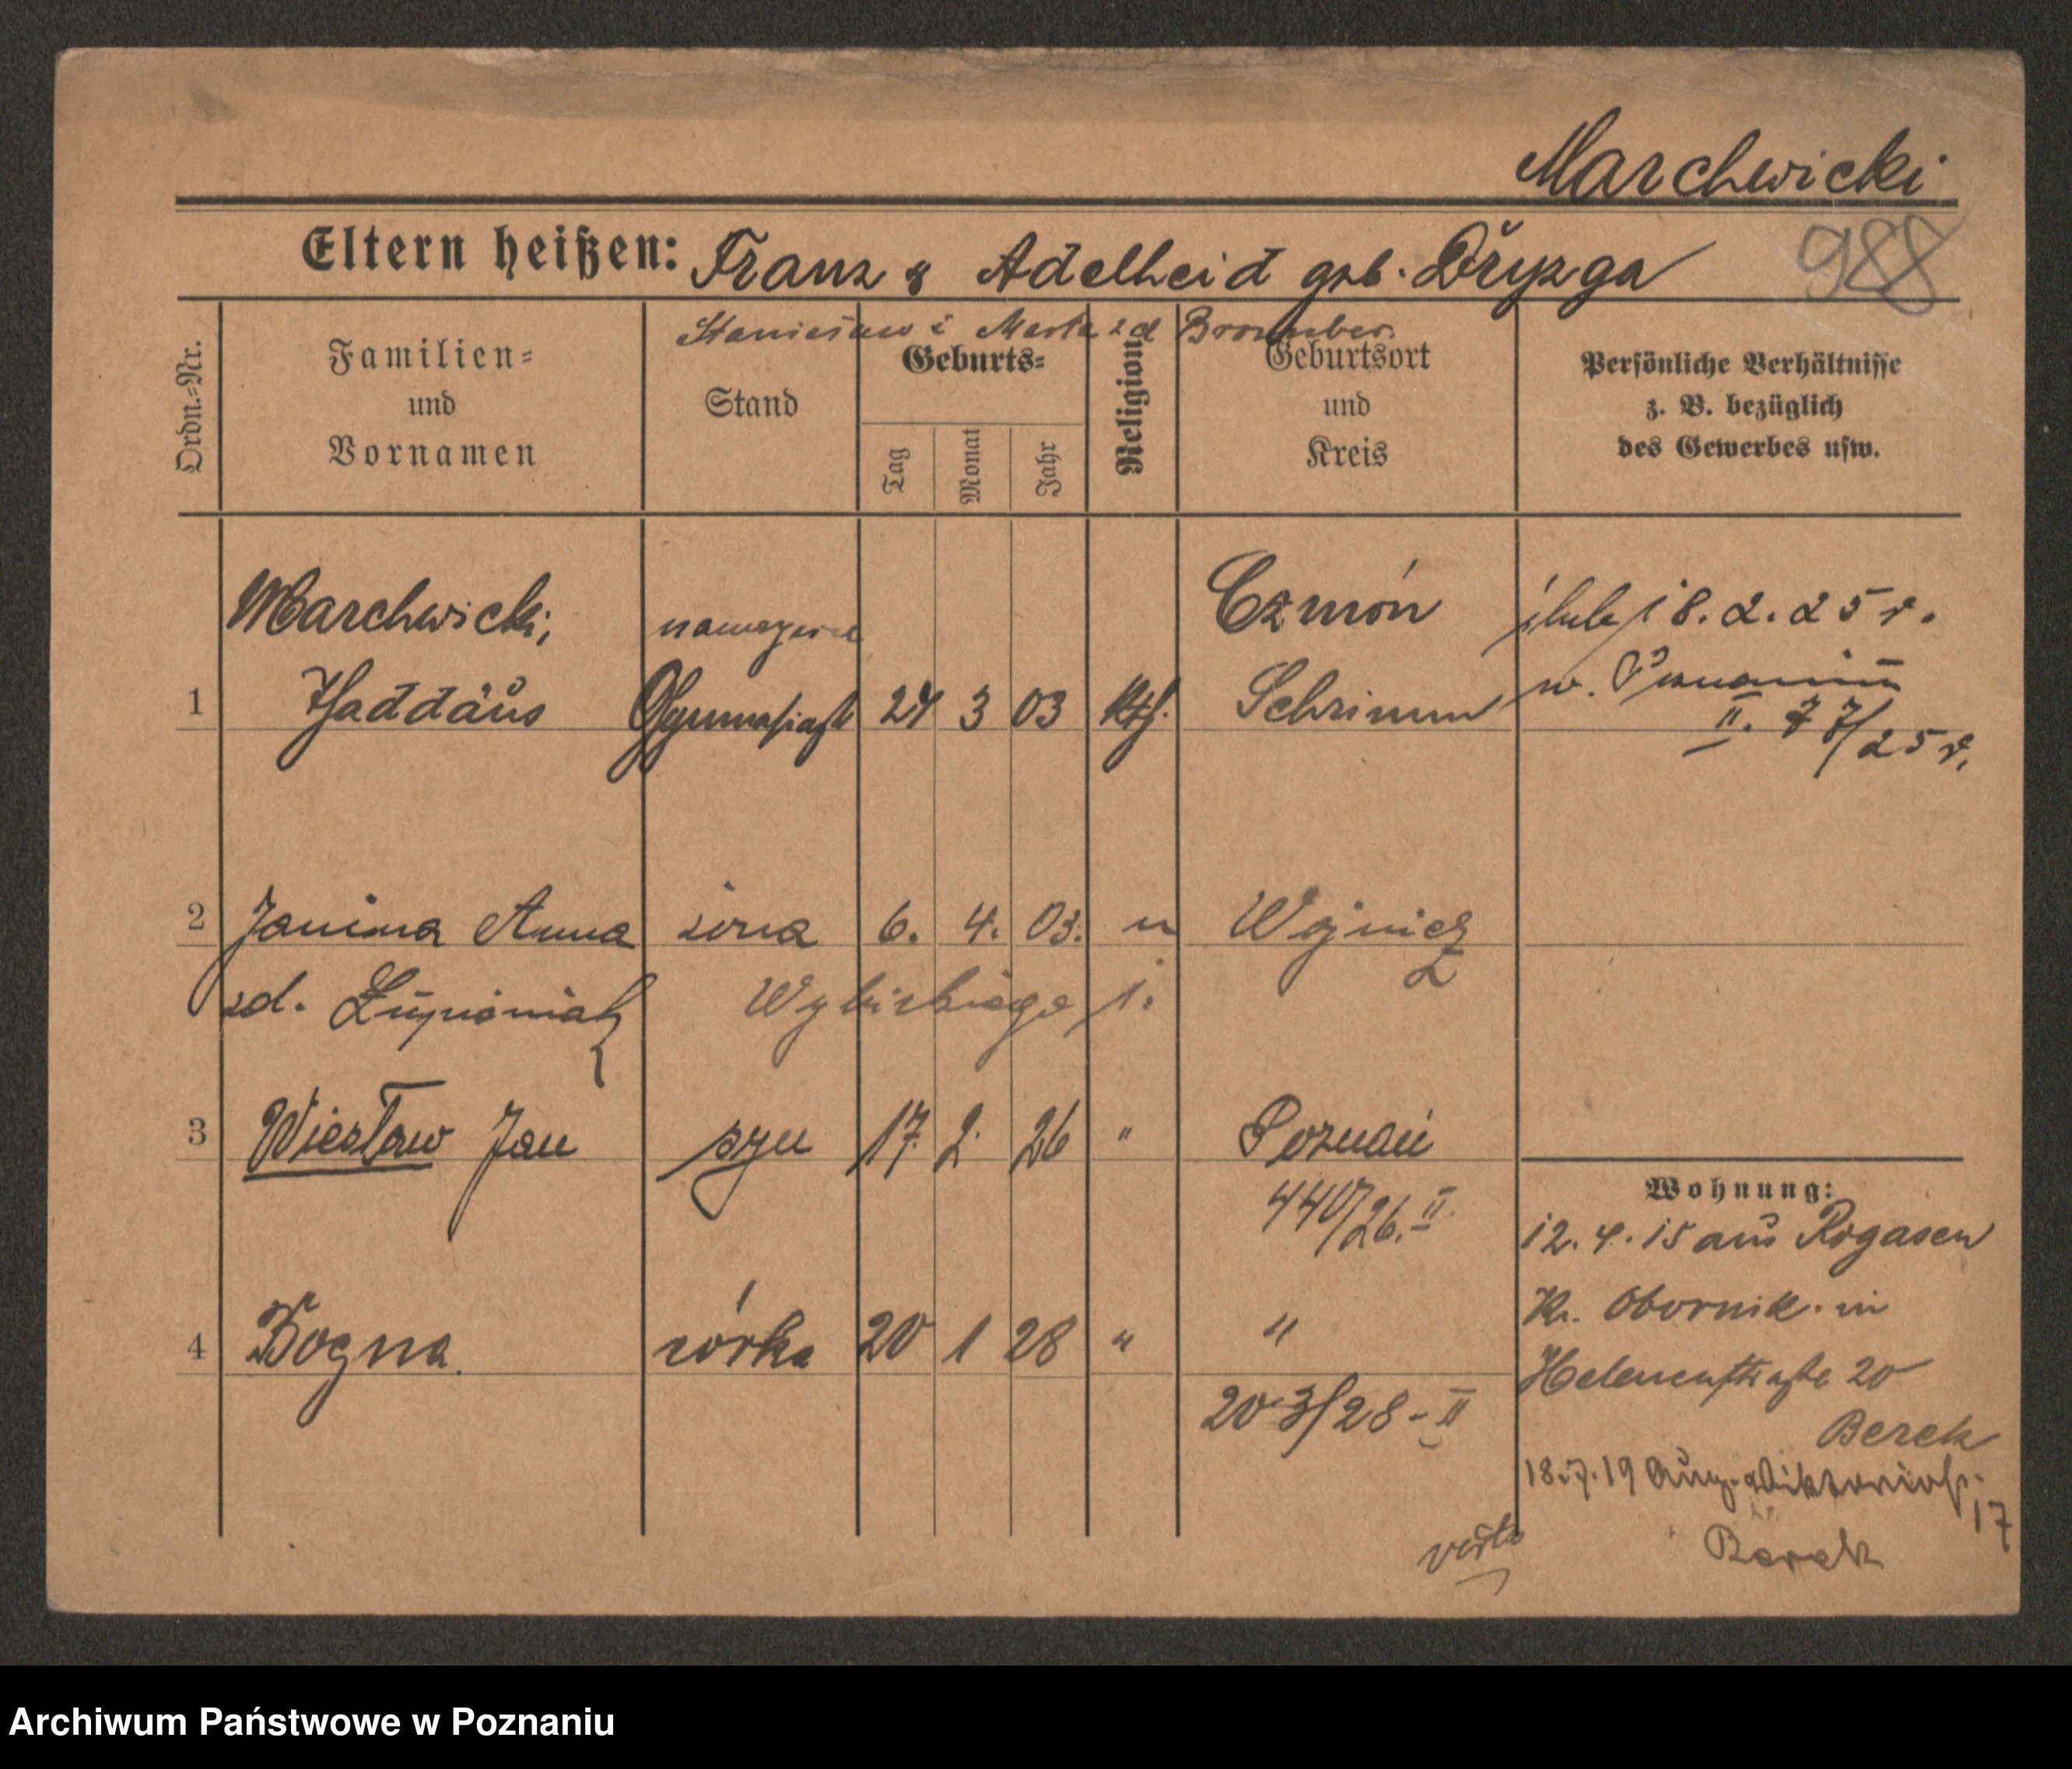 Marchwicki
Eltern heißen: Franz & Adelheid geb. Dryzga
988
Stanisław i Marta zd Bromber.
Ordn.-Nr.
Familien- und Vornamen
Stand
Geburts-
Tag
Monat
Jahr
Religion
Geburtsort und Kreis
Persönliche Verhältnisse z. B. bezüglich des Gewerbes usw.
Marchwicki, Czmoń ślub 18.2.25 r.
1 Thaddäus Gymnasiast 24 3 03 kth. Schrimm w. Poznaniu
II. 77/25 r.
2 Janina Anna żona 6. 4. 03. " Wojnicz
zd. Wybickiego 1.
3 Wiesław Jan syn 17. 2. 26 " Poznań
440/26. II.
Wohnung:
12.4.15 aus Rogasen
Kr. Obornik in
4 Bogna. córka 20 1 28 " "
Helenenstraße 20
203/28 - II
Berek
18.7.19 Aug. Viktoriastr. 17
Berek
verte
Archiwum Państwowe w Poznaniu